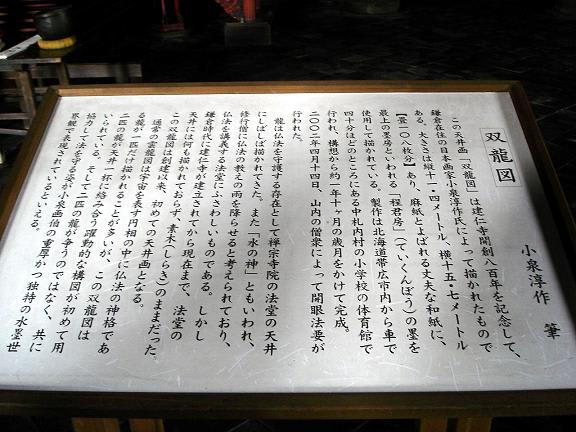 双龍図
小泉淳作 筆
この天井画「双龍図」は建仁寺開創八百年を記念して、
鎌倉在住の日本画家小泉淳作氏によって、描かれたもので
ある。大きさは縦十一・四メートル、横十五・七メートル
【畳一〇八枚分】あり、麻紙とよばれる丈夫な和紙に、
最上の墨房といわれる「程君房」(ていくんぼう)の墨を
使用して描かれている。製作は北海道帯広市内から車で
四十分ほどのところにある中札内村の小学校の体育館で
行われ、構想から約一年十ヶ月の歳月をかけて完成。
二〇〇二年四月十四日、山内の僧衆によって開眼法要が
行われた。
龍は仏法を守護する存在として禅宗寺院の法堂の天井
にしばしば描かれてきた。また「水の神」ともいわれ、
修行僧に仏法の教えの雨を降らせると考えられており、
仏法を講義する法堂にふさわしいものである。しかし
鎌倉時代に建仁寺が建立されてから現在まで、法堂の
天井には何も描かれておらず、素木(しらき)のままだった。
この双龍図は創建以来、初めての天井画となる。
通常の雲龍図は宇宙を表す円相の中に仏法の神格であ
る龍が一匹だけ描かれることが多いが、この双龍図は
二匹の龍が天井一杯に絡み合う躍動的な構図が初めて用
いられている。そして二匹の龍が争うのではなく、共に
協力して法を守る姿が小泉画伯の重厚かつ独特の水墨世
界観で表現されているといえる。